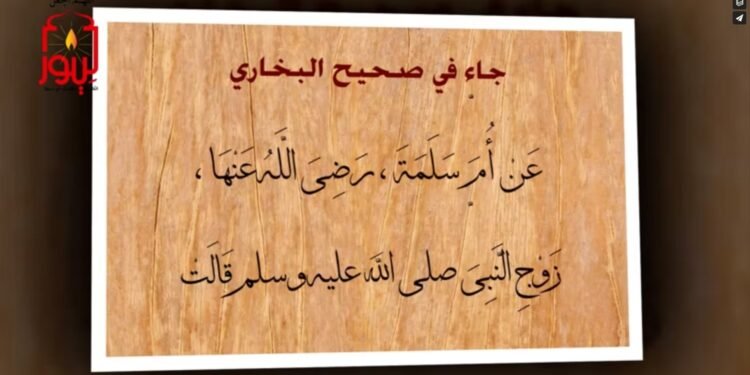 جاء في صحيح البخاري
عَن أُمِّ سَلَمَةَ، رَضِيَ اللَّهُ عَنْهَا،
زَوْجِ النَّبِيَ صلى الله عليه وسلم قَالَتْ